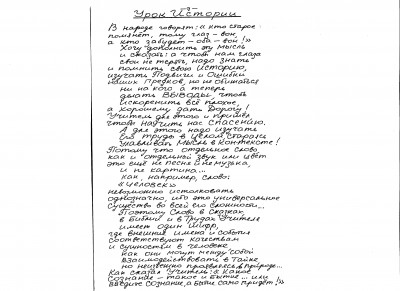 Урок Истории
В народе говорят: а кто старое
помянет, тому глаз - вон,
а кто забудет - оба - вон!»
Хочу дополнить эту мысль
и сказать: а чтоб нам глаза
свои не терять, надо знать
и помнить свою Историю,
изучать Подвиги и Ошибки
наших Предков, но не обижаться
ни на кого а теперь
делать ВЫВОДЫ, чтоб
Искоренить всё плохое,
а хорошему дать Дорогу!
Учитель для этого и пришёл
чтобы научить нас Спасению.
А для этого надо изучать
Его труды в целом, стараясь
улавливать Мысль в Контексте!
Потому что отдельное слово
как и отдельной звук или цвет
это ещё не песня и не музыка,
и не картина...
как, например, слово:
«человек»
невозможно истолковать
однозначно, ибо это универсальное
существо во всей его сложности...
Поэтому Слово в сказках,
в Библии и в Трудах Учителя
имеет один Шифр,
где внешние имена и события
соответствуют качествам
и сущностям в человеке
как они могут между собой
взаимодействовать в Тайне
но неизбежно проявляясь в природе...
Как сказал Учитель: « Какое
Сознание - такое и Бытие... или
введите Сознание, а Бытие само придёт!»